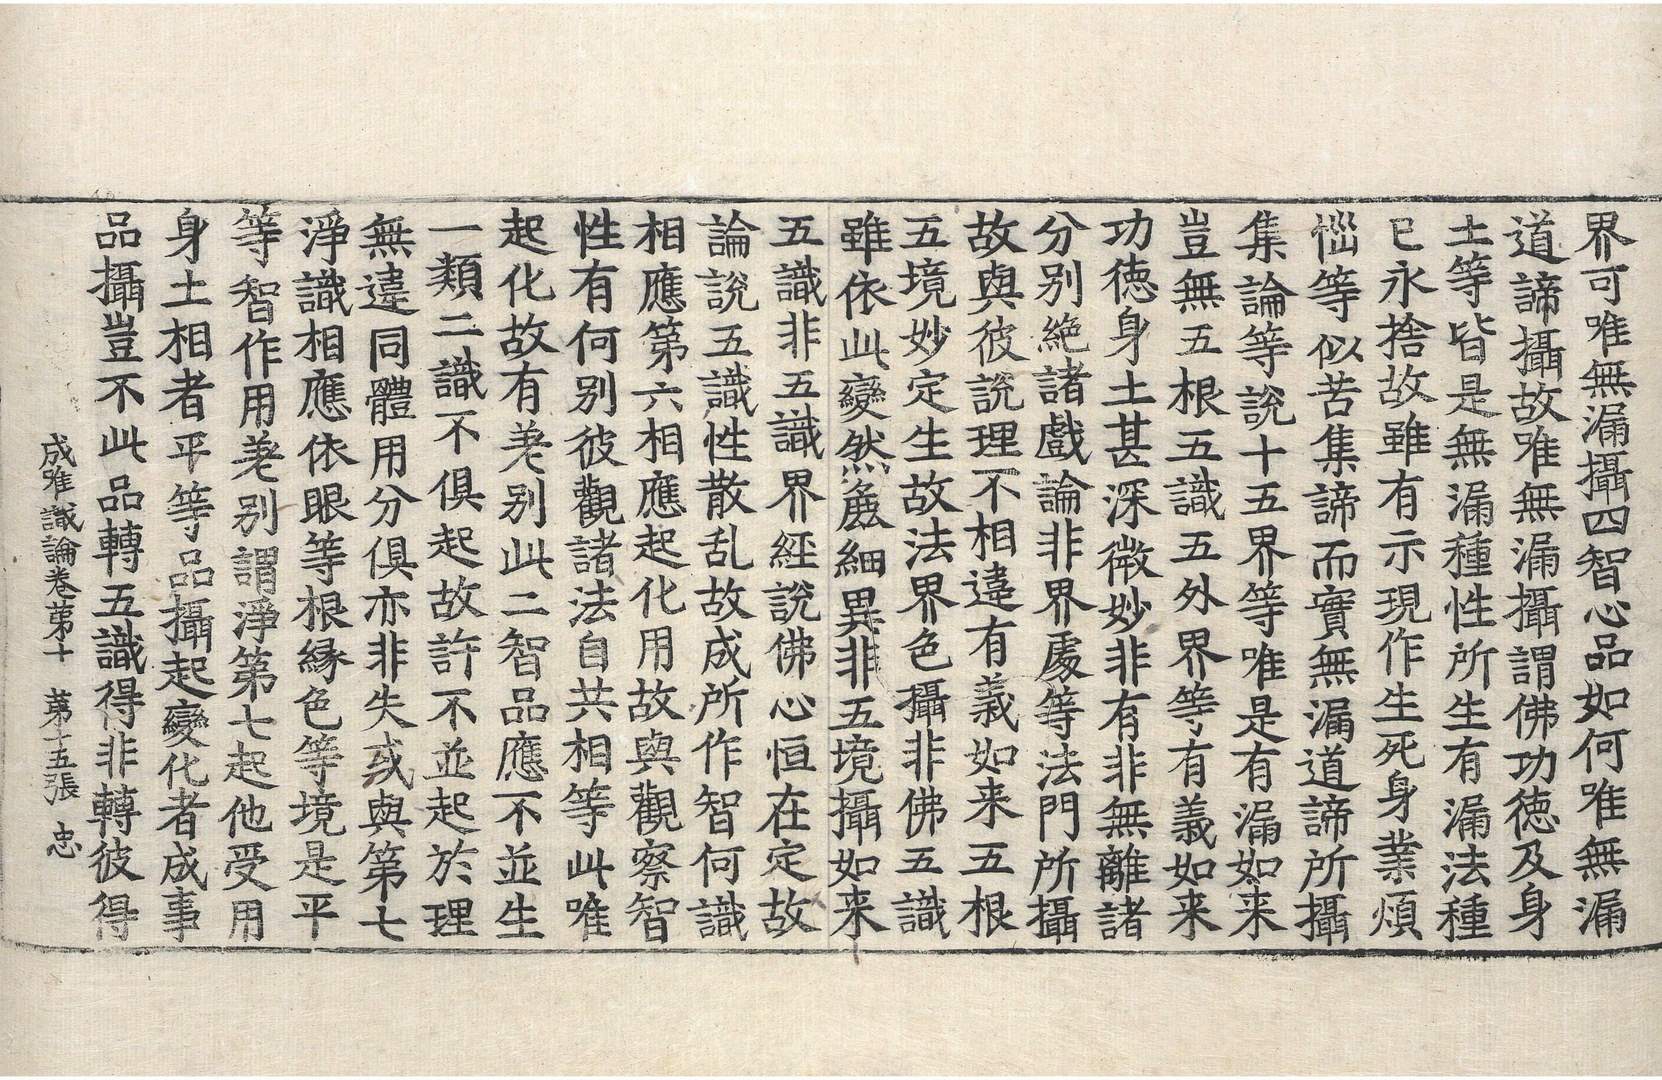 界可唯無漏攝四智心品如何唯無漏
道諦攝故唯無漏攝謂佛功徳及身
土等皆是無漏種性所生有漏法種
已永捨故雖有示現作生死身業煩
惱等似苦集諦而實無漏道諦所攝
集論等說十五界等唯是有漏如来
豈無五根五識五外界等有義如来
功徳身土甚深微妙非有非無離諸
分別絶諸戲論非界處等法門所攝
故與彼說理不相違有義如来五根
五境妙定生故法界色攝非佛五識
雖依此變然麁細異非五境攝如来
五識非五識界經說佛心恒在定故
論說五識性散乱故成所作智何識
相應第六相應起化用故與觀察智
性有何別彼觀諸法自共相等此唯
起化故有差別此二智品應不並生
一類二識不俱起故許不並起於理
無違同體用分俱亦非失或與第七
淨識相應依眼等根縁色等境是平
等智作用差別謂淨第七起他受用
身土相者平等品攝起變化者成事
品攝豈不此品轉五識得非轉彼得
成唯識論卷第十　第十五張　忠